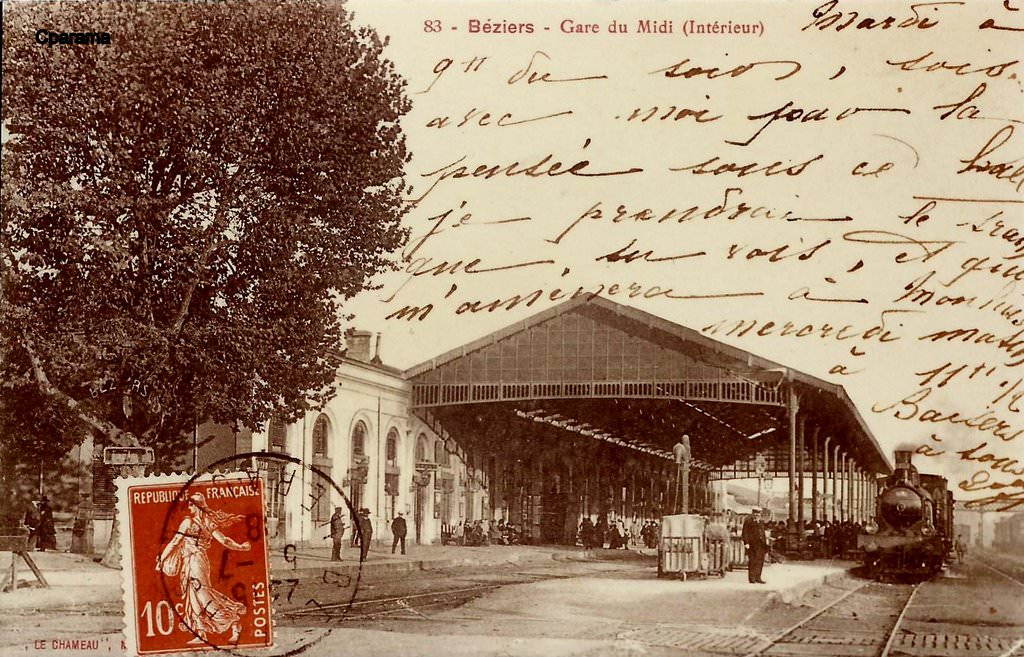 Cparama
83 - Béziers - Gare du Midi (Intérieur)
Mardi à
9" du soir, sois
avec moi par la
pensée sous ce hall
je prendrai le train
que tu vois, et qui
m'amènera à
mercredi matin
à 11" ½
Baisers
à tous
REPUBLIQUE FRANÇAISE
10c
POSTES
LE CHAMEAU